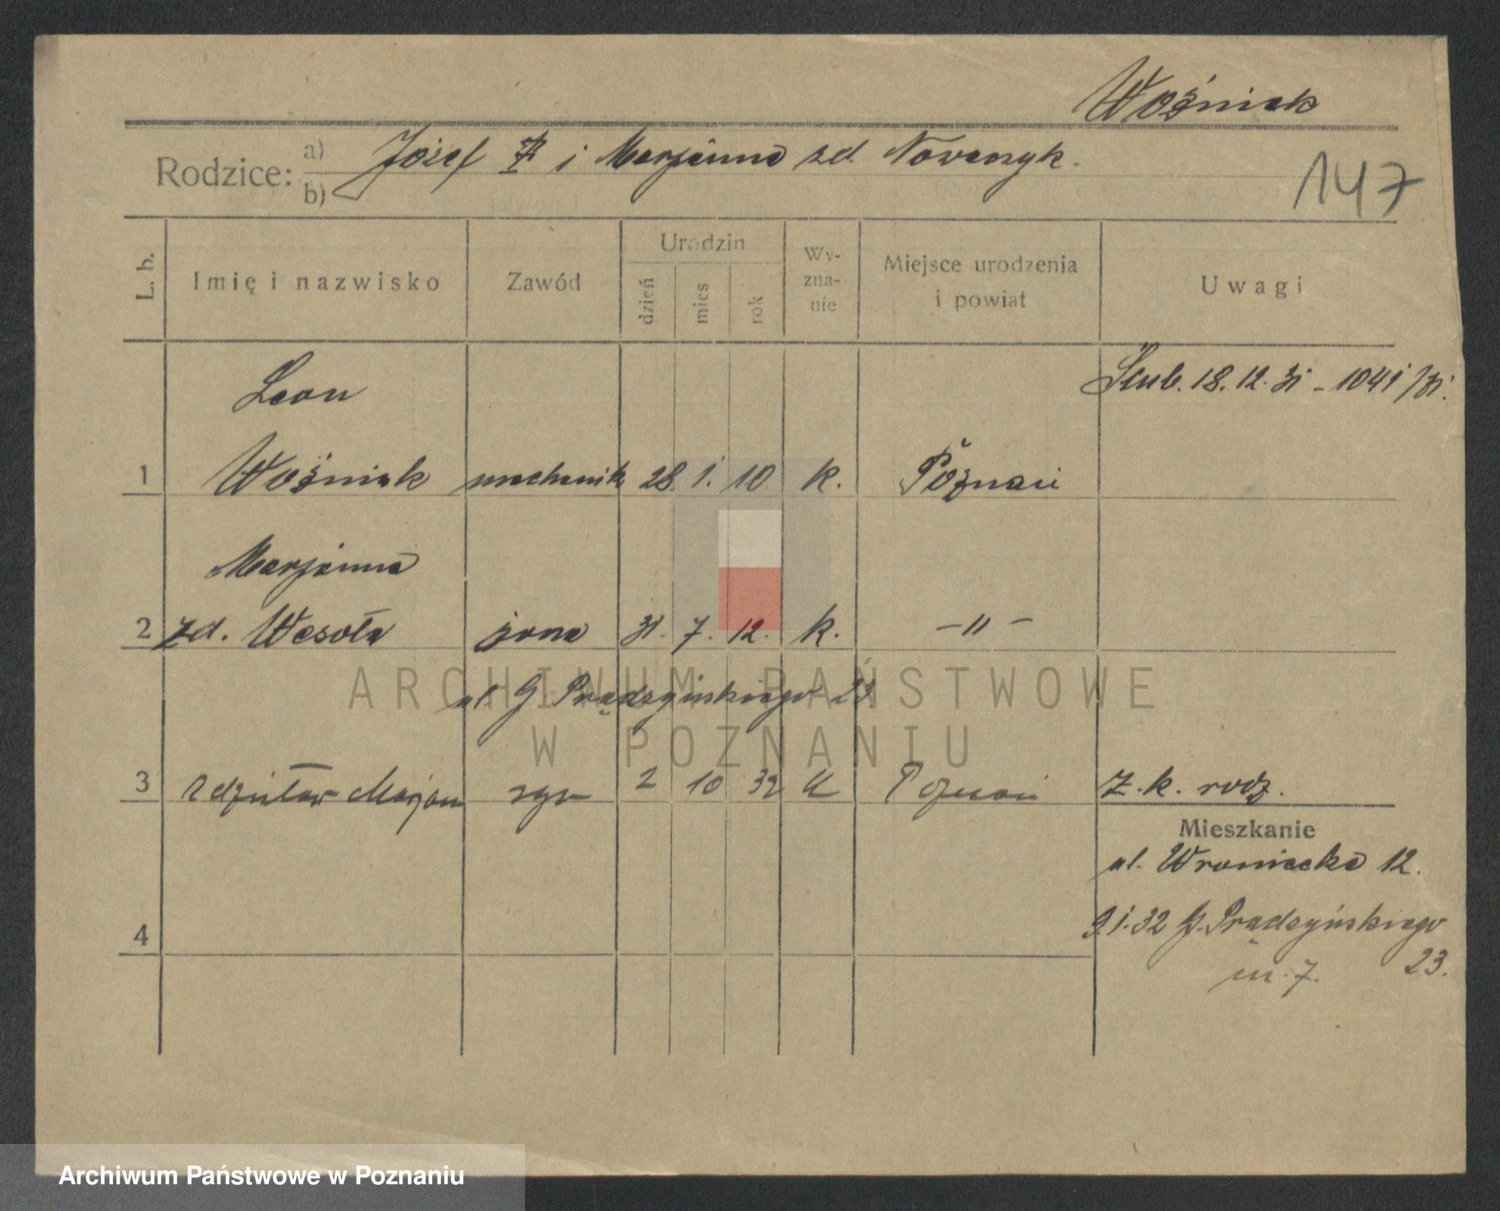 Woźniak
Rodzice: a) Józef i Marjanna zd. Nowaczyk.
b)
147
L. b.
Imię i nazwisko
Zawód
Urodzin
dzień
mies
rok
Wy-
zna-
nie
Miejsce urodzenia
i powiat
Uwagi
Leon
Ślub. 18. 12. 31 - 1041/31.
1 Woźniak mechanik 28 1. 10 k. Poznań
Marjanna
2 zd. Wesoła żona 31. 7. 12. k. — " —
ul. G. Prądzyńskiego 23
3 Zdzisław Marjan syn 2 10 32 k Poznań Z. k. rodz.
Mieszkanie
ul. Wroniecka 12.
4
9.1.32 G. Prądzyńskiego
23.
m. 7.
ARCHIWUM PAŃSTWOWE
W POZNANIU
Archiwum Państwowe w Poznaniu